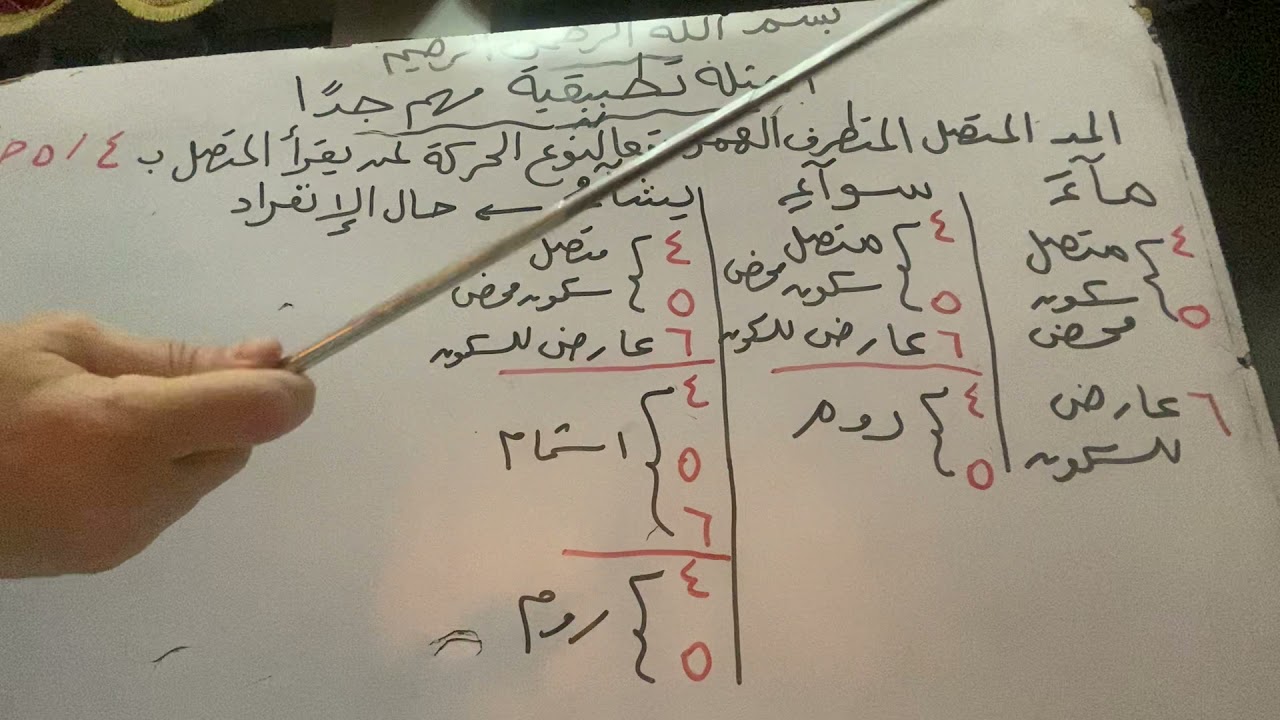 بسم الله الرحمن الرحيم
تطبيقية مهم جدًا
المد المتصل المتطرف الهمز تبعا لنوع الحركة لمن يقرأ المتصل ب ٤ / ٥
مآءَ
٤ متصل
٥ سكون محض
٦ عارض للسكون
سوآءٍ
٤ متصل
٥ سكون محض
٦ عارض للسكون
٤ روم
٥
يشاءُ ← حال الإنفراد
٤ متصل
٥ سكون محض
٦ عارض للسكون
٤
٥ اشمام
٦
٤ روم
٥